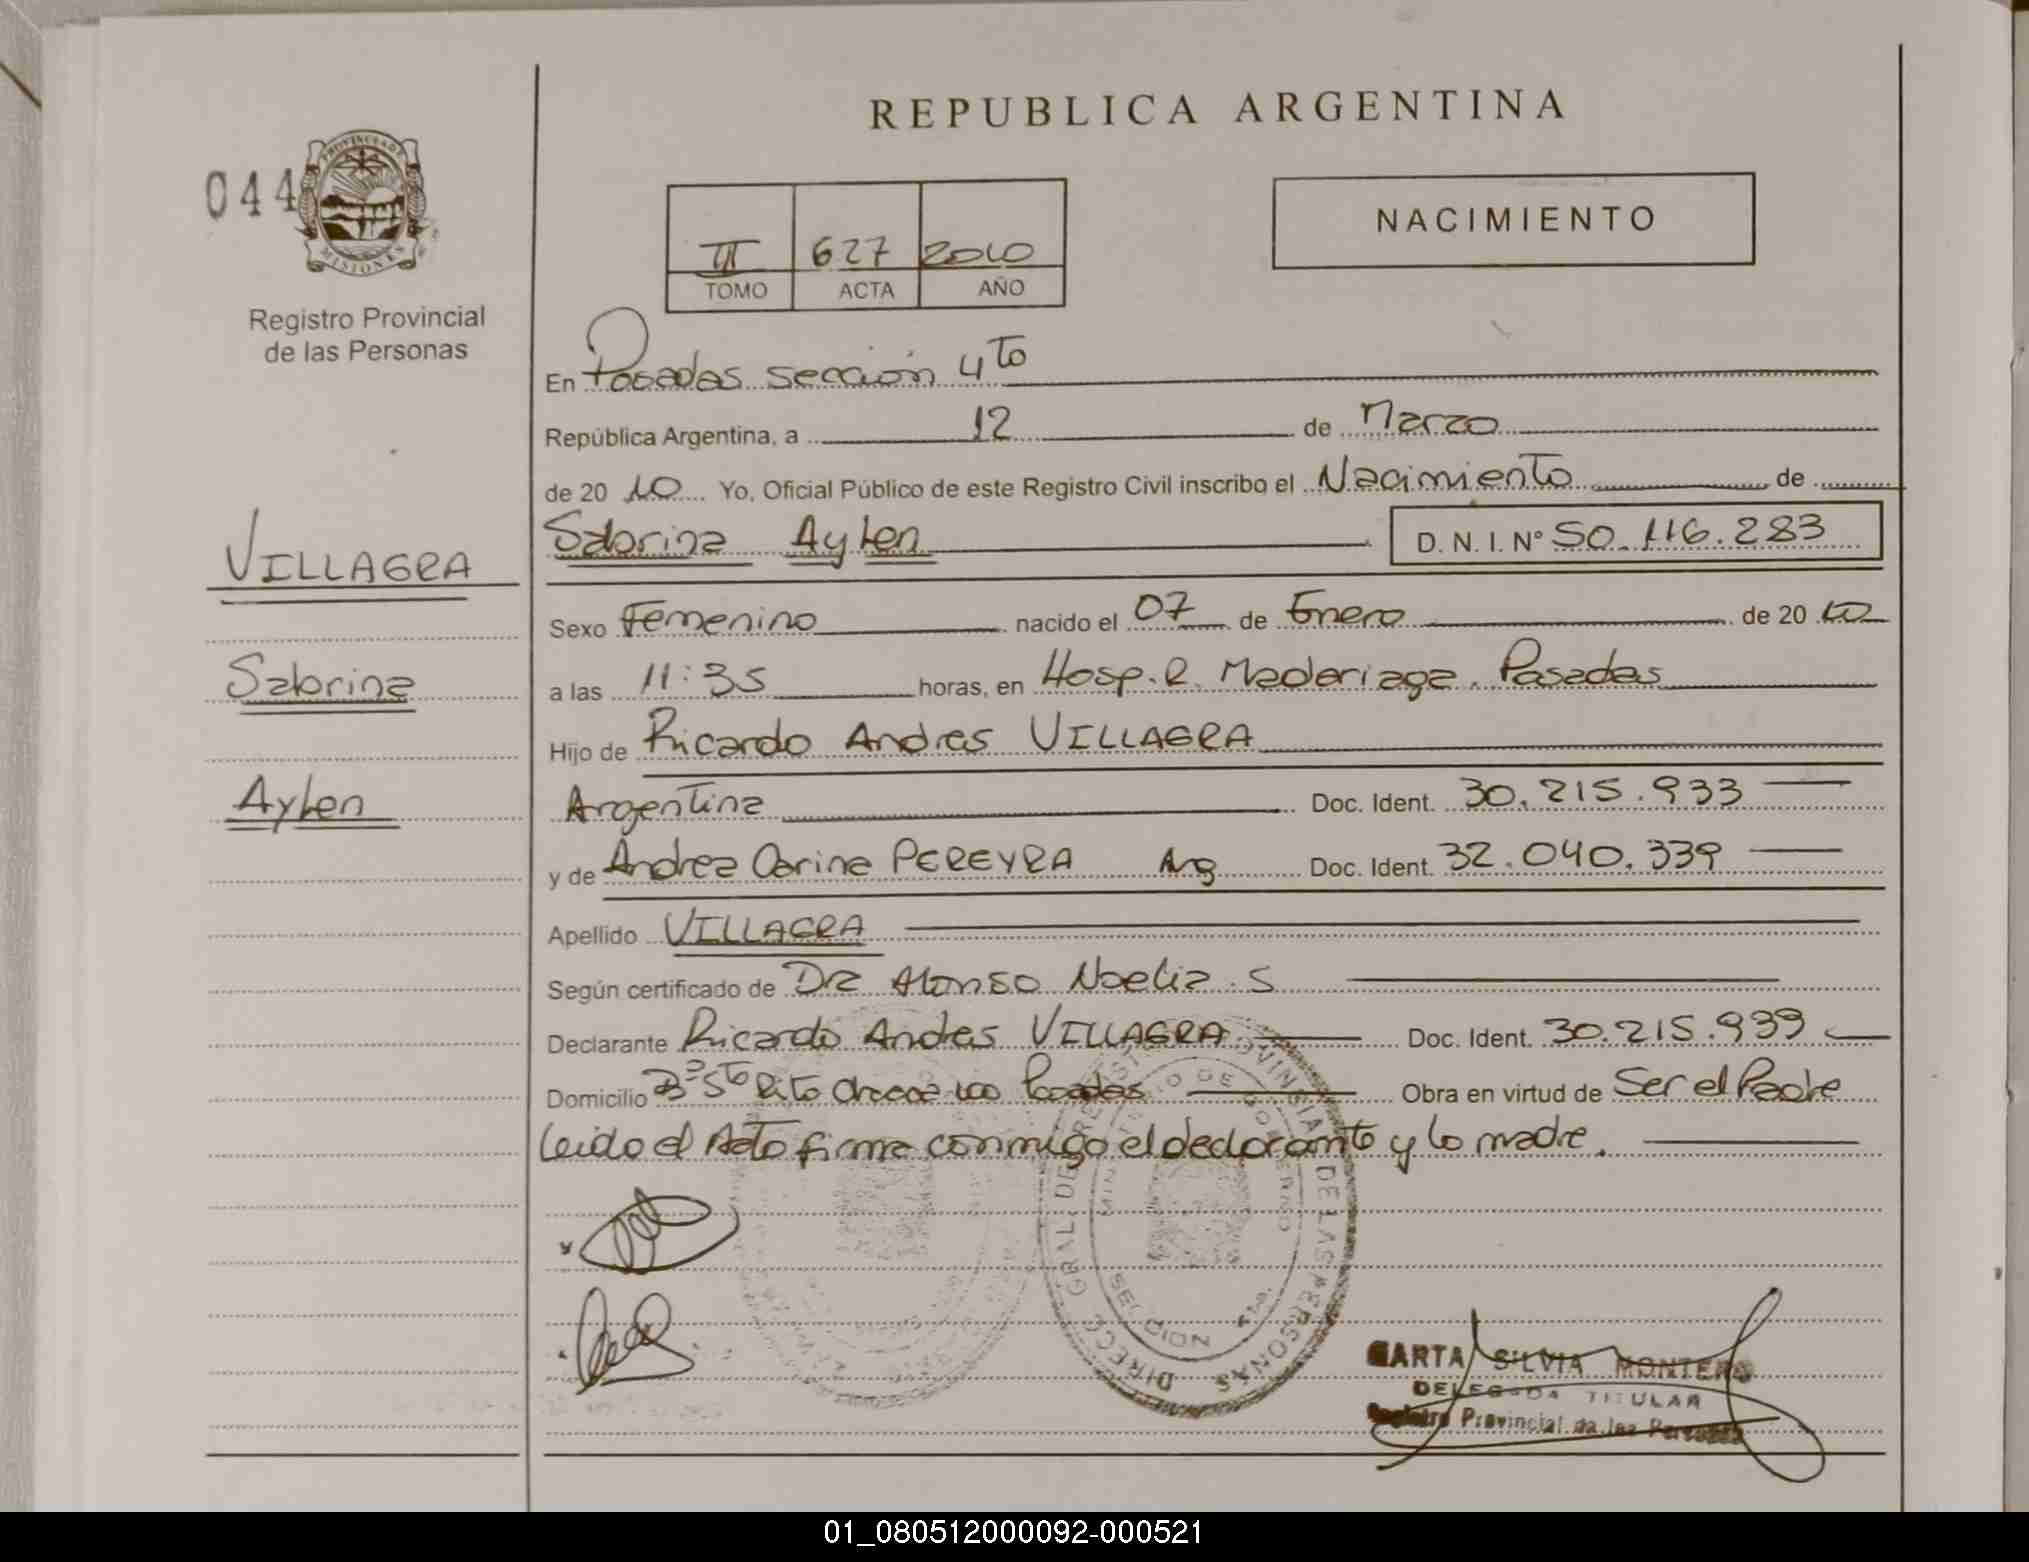 REPUBLICA ARGENTINA
044
PROVINCIA DE
MISIONES
Registro Provincial
de las Personas
II 627 2010
TOMO ACTA AÑO
NACIMIENTO
En Posadas sección 4to
República Argentina, a 12 de Marzo
de 2010 Yo, Oficial Público de este Registro Civil inscribo el Nacimiento de
Sabrina Aylen D. N. I. Nº 50.116.283
VILLAGRA
Sabrina
Aylen
Sexo Femenino nacido el 07 de Enero de 2010
a las 11:35 horas, en Hosp. R. Madariaga. Posadas
Hijo de Ricardo Andres VILLAGRA
Argentina Doc. Ident. 30.215.933
y de Andrea Carina PEREYRA Arg Doc. Ident. 32.040.339
Apellido VILLAGRA
Según certificado de Dra Alonso Noelia. S
Declarante Ricardo Andres VILLAGRA Doc. Ident. 30.215.939
Domicilio Bº Sto Posadas Obra en virtud de Ser el Padre
Leido el Acto firma conmigo el declarante y la madre.
DIRECC GRAL DE PROVINCIAL DE LAS PERSONAS
MINISTERIO DE GOBIERNO
SECCION 4ta.
SILVIA MONTERO
DELEGADA TITULAR
Registro Provincial de las Personas
01_080512000092-000521